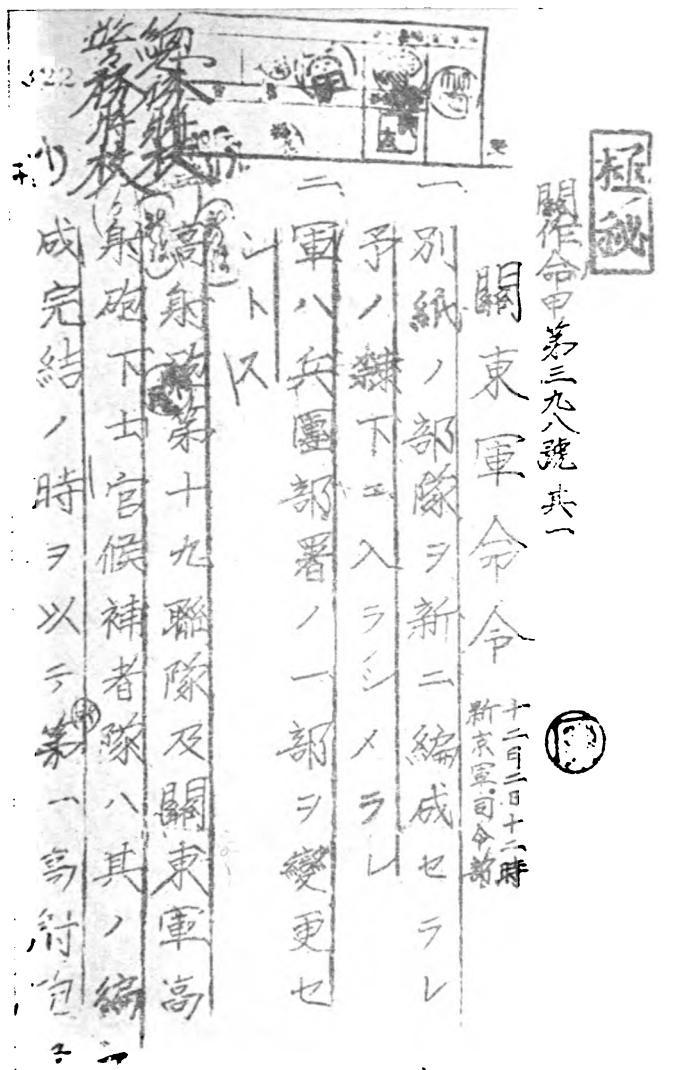 極秘
關作命甲第三九八號 其一
關東軍命令
十二月二日十二時
新京軍司令部
一、別紙ノ部隊ヲ新ニ編成セラレ
予ノ隷下ニ入ラシメラレ
二、軍ハ兵團部署ノ一部ヲ變更セ
ントス
三、高射砲第十九聯隊及關東軍高
射砲下士官候補者隊ハ其ノ編
成完結ノ時ヲ以テ第一高射砲